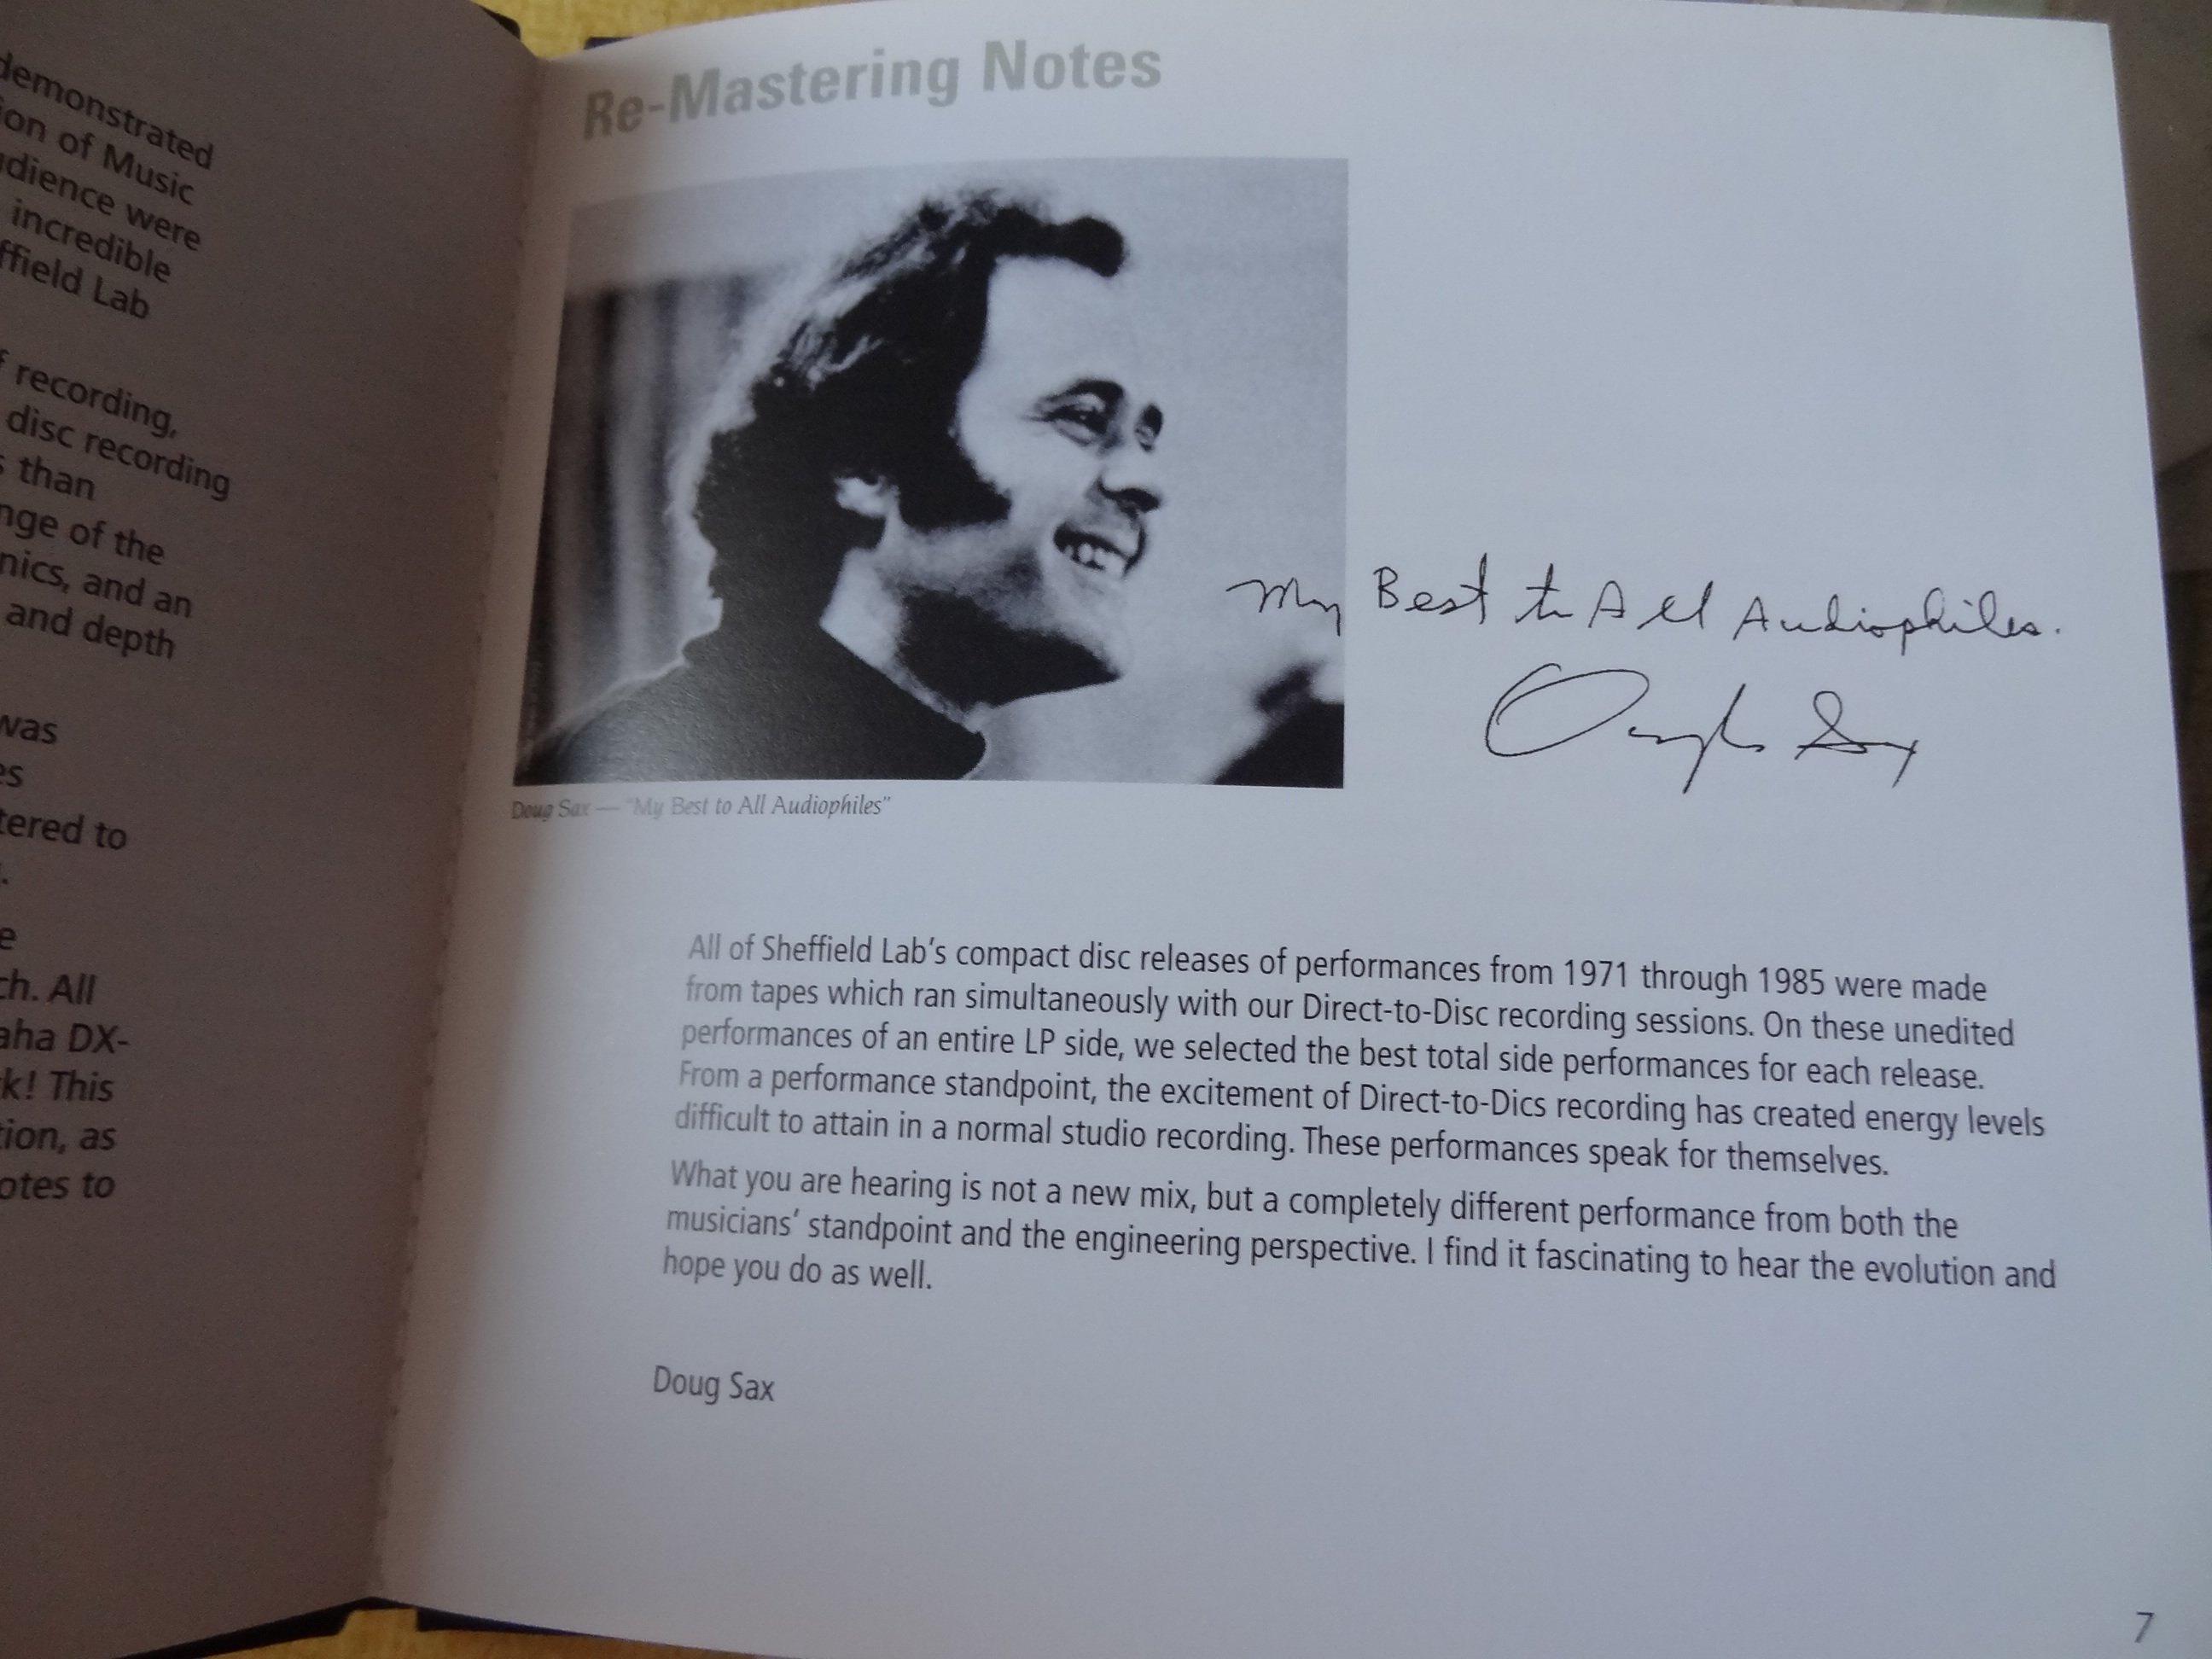 demonstrated
of Music
were
incredible
Lab
recording,
disc recording
than
of the
and an
and depth
was
to
All
DX-
This
as
to
Re-Mastering Notes
My Best to All Audiophiles.
Doug Sax
Doug Sax — "My Best to All Audiophiles"
All of Sheffield Lab's compact disc releases of performances from 1971 through 1985 were made
from tapes which ran simultaneously with our Direct-to-Disc recording sessions. On these unedited
performances of an entire LP side, we selected the best total side performances for each release.
From a performance standpoint, the excitement of Direct-to-Dics recording has created energy levels
difficult to attain in a normal studio recording. These performances speak for themselves.
What you are hearing is not a new mix, but a completely different performance from both the
musicians' standpoint and the engineering perspective. I find it fascinating to hear the evolution and
hope you do as well.
Doug Sax
7